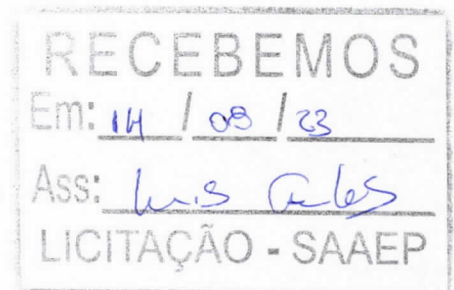 RECEBEMOS
Em: 14 / 08 / 23
Ass: Luis Carlos
LICITAÇÃO - SAAEP